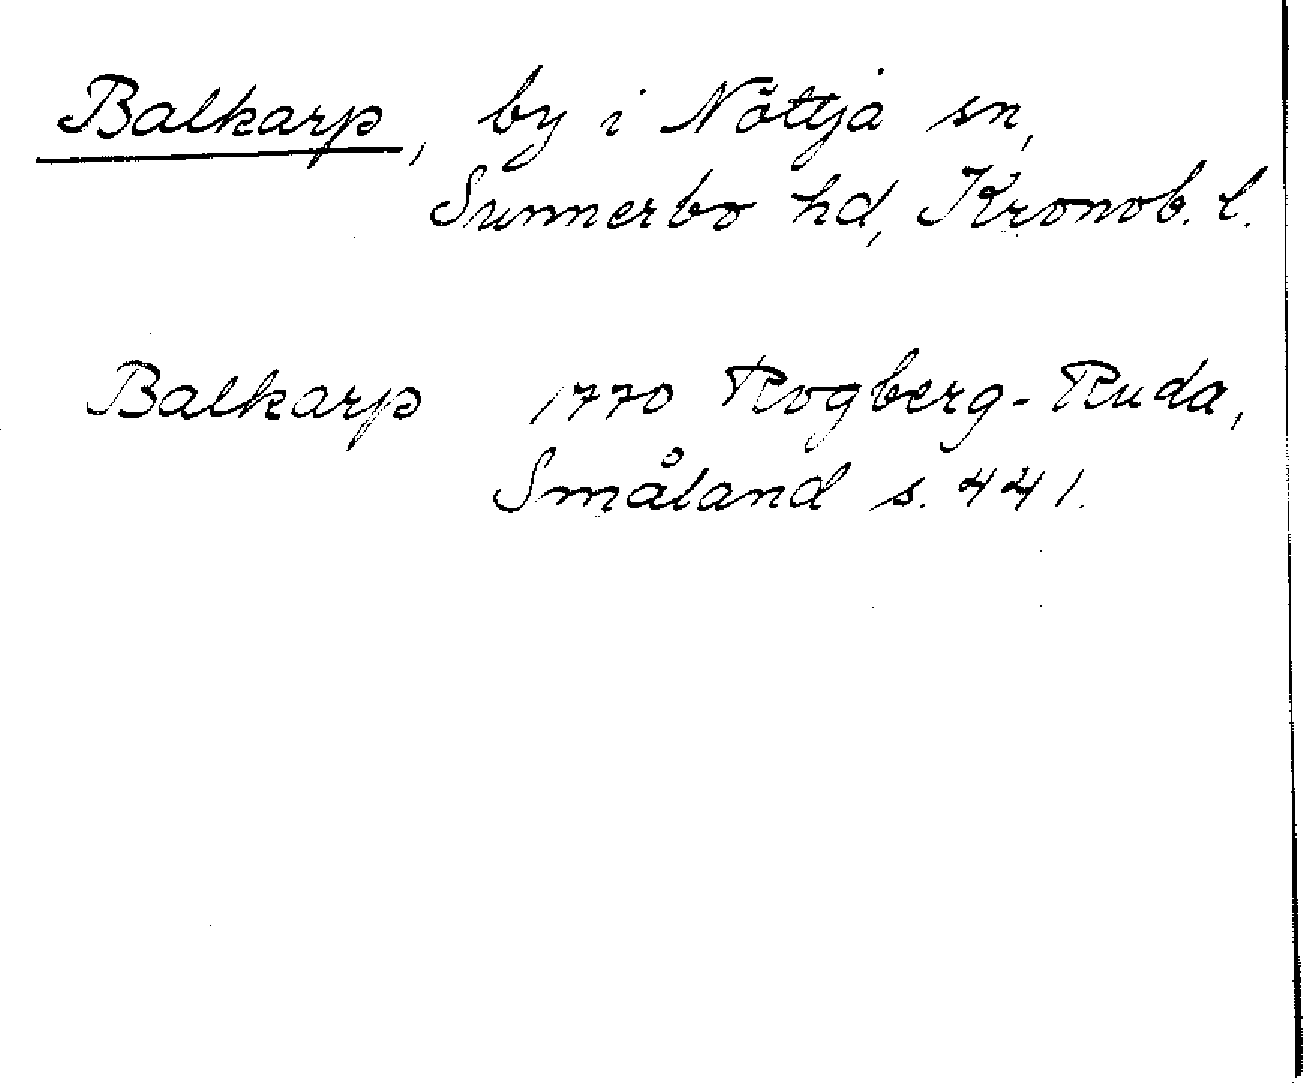 Balkarp, by i Nöttja sn,
Sunnerbo hd, Kronob. l.
Balkarp 1770 Rogberg-Ruda,
Småland s. 441.